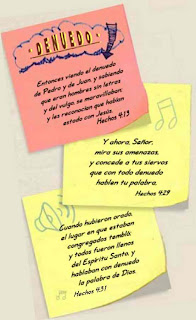 DENUEDO
Entonces viendo el denuedo
de Pedro y de Juan, y sabiendo
que eran hombres sin letras
y del vulgo, se maravillaban;
y les reconocían que habían
estado con Jesús.
Hechos 4:13
Y ahora, Señor,
mira sus amenazas,
y concede a tus siervos
que con todo denuedo
hablen tu palabra,
Hechos 4:29
Cuando hubieron orado,
el lugar en que estaban
congregados tembló;
y todos fueron llenos
del Espíritu Santo, y
hablaban con denuedo
la palabra de Dios.
Hechos 4:31